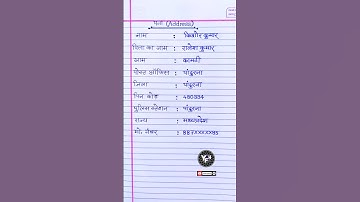 पता (Address)
नाम : किशोर कुमार
पिता का नाम : राजेश कुमार
ग्राम :
पोस्ट ऑफिस : पांढुरना
जिला : पांढुरना
पिन कोड : 480334
पुलिस स्टेशन : पांढुरना
राज्य : मध्यप्रदेश
मो. नंबर : 887XXXXX95